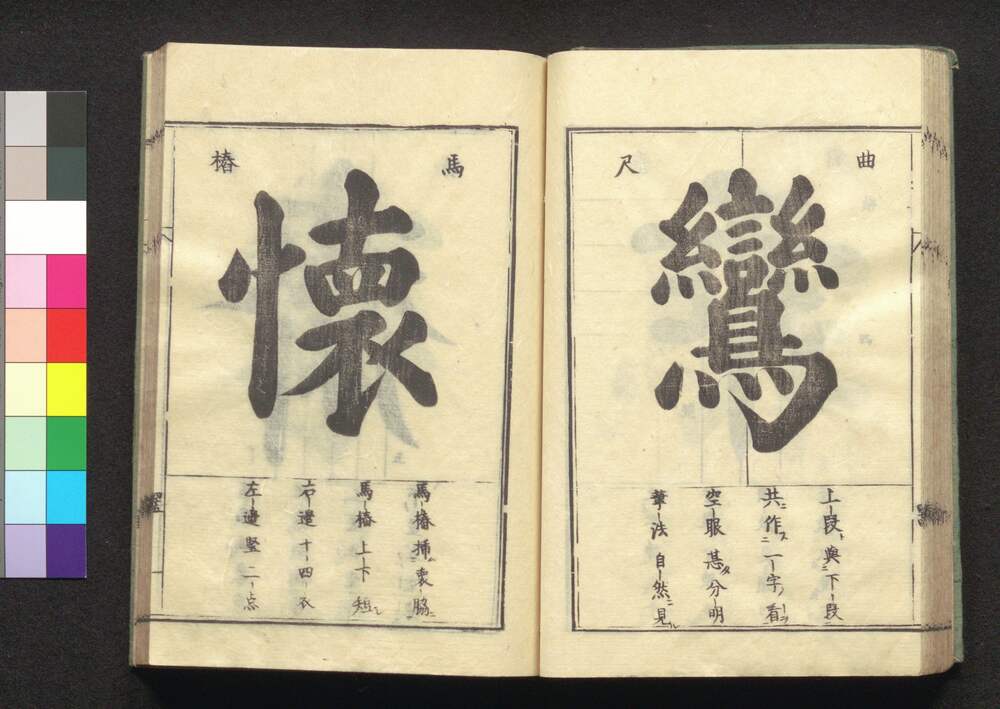 曲尺
鸞
上段與下段
共作一字看
空眼甚分明
筆法自然見
馬椿
懐
馬椿挿脇
馬椿上下短
右邊十四衣
左邊竪二点